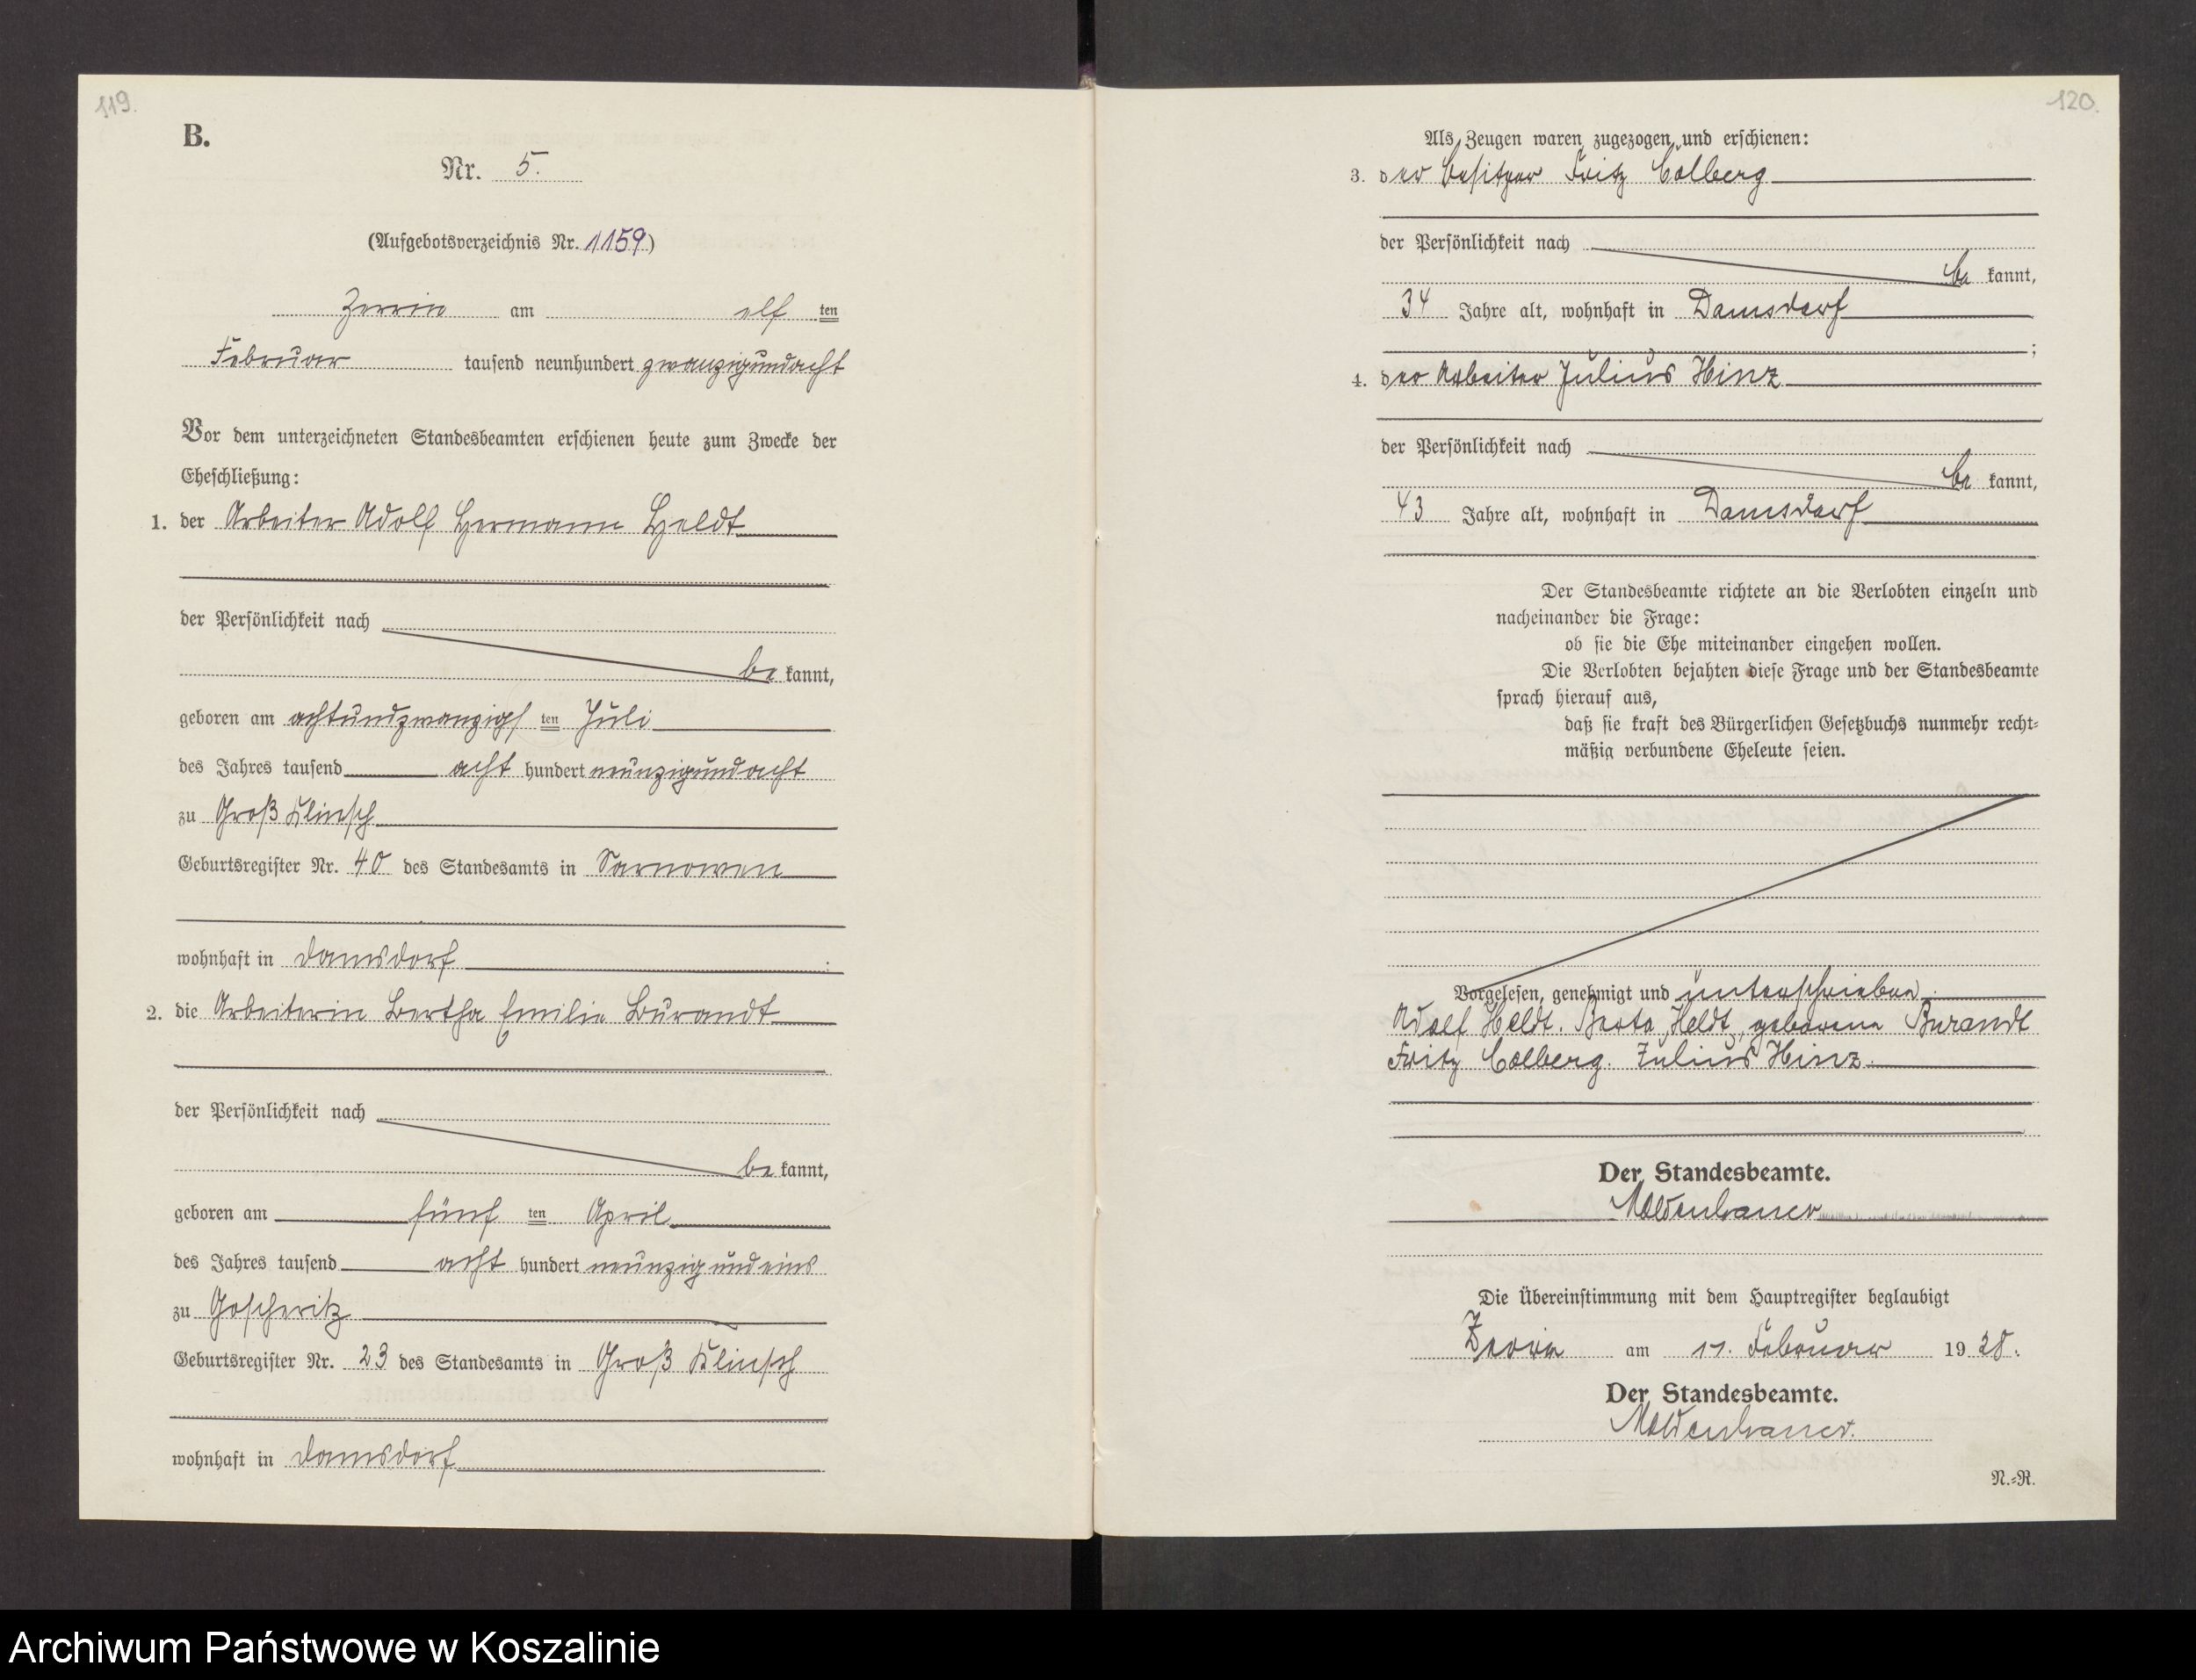 119.
B.
Nr. 5.
(Aufgebotsverzeichnis Nr. 1159)
Zerrin am elf ten
Februar tausend neunhundert zwanzigundacht
Vor dem unterzeichneten Standesbeamten erschienen heute zum Zwecke der
Eheschließung:
1. der Arbeiter Adolf Hermann Heldt
der Persönlichkeit nach
be kannt,
geboren am achtundzwanzigs ten Juli
des Jahres tausend acht hundert neunzigundacht
zu Groß Klinsch
Geburtsregister Nr. 40 des Standesamts in Sarnowen
wohnhaft in Damsdorf
2. die Arbeiterin Bertha Emilie Burandt
der Persönlichkeit nach
be kannt,
geboren am fünf ten April
des Jahres tausend acht hundert neunzigundeins
zu Goscheritz
Geburtsregister Nr. 23 des Standesamts in Groß Klinsch
wohnhaft in Damsdorf
120.
Als Zeugen waren zugezogen und erschienen:
3. der Besitzer Fritz Colberg
der Persönlichkeit nach
be kannt,
34 Jahre alt, wohnhaft in Damsdorf
;
4. der Arbeiter Julius Hinz
der Persönlichkeit nach
be kannt,
43 Jahre alt, wohnhaft in Damsdorf
Der Standesbeamte richtete an die Verlobten einzeln und
nacheinander die Frage:
ob sie die Ehe miteinander eingehen wollen.
Die Verlobten bejahten diese Frage und der Standesbeamte
sprach hierauf aus,
daß sie kraft des Bürgerlichen Gesetzbuchs nunmehr recht-
mäßig verbundene Eheleute seien.
Vorgelesen, genehmigt und unterschrieben.
Adolf Heldt. Berta Heldt, geborene Burandt
Fritz Colberg. Julius Hinz.
Der Standesbeamte.
Moldenhauer
Die Übereinstimmung mit dem Hauptregister beglaubigt
Zerrin am 11. Februar 1928.
Der Standesbeamte.
Moldenhauer.
N.-R.
Archiwum Państwowe w Koszalinie